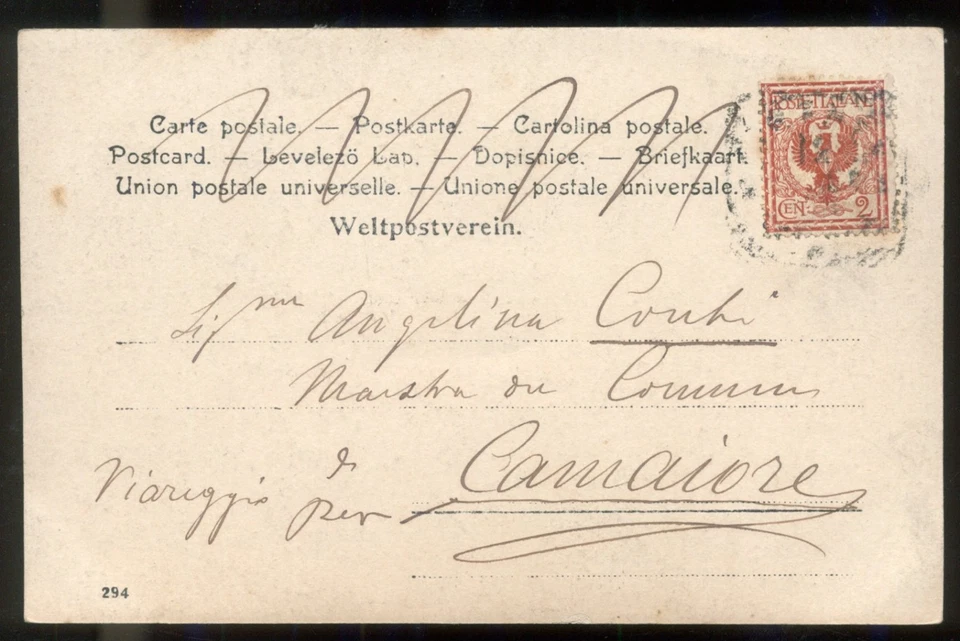 Carte postale. — Postkarte. — Cartolina postale.
Postcard. — Levelező Lap. — Dopisnice. — Briefkaart.
Union postale universelle. — Unione postale universale.
Weltpostverein.
POSTE ITALIANE
CEN 2
Angelina Conti
Maestra Comun
Viareggio
per Camaiore
294